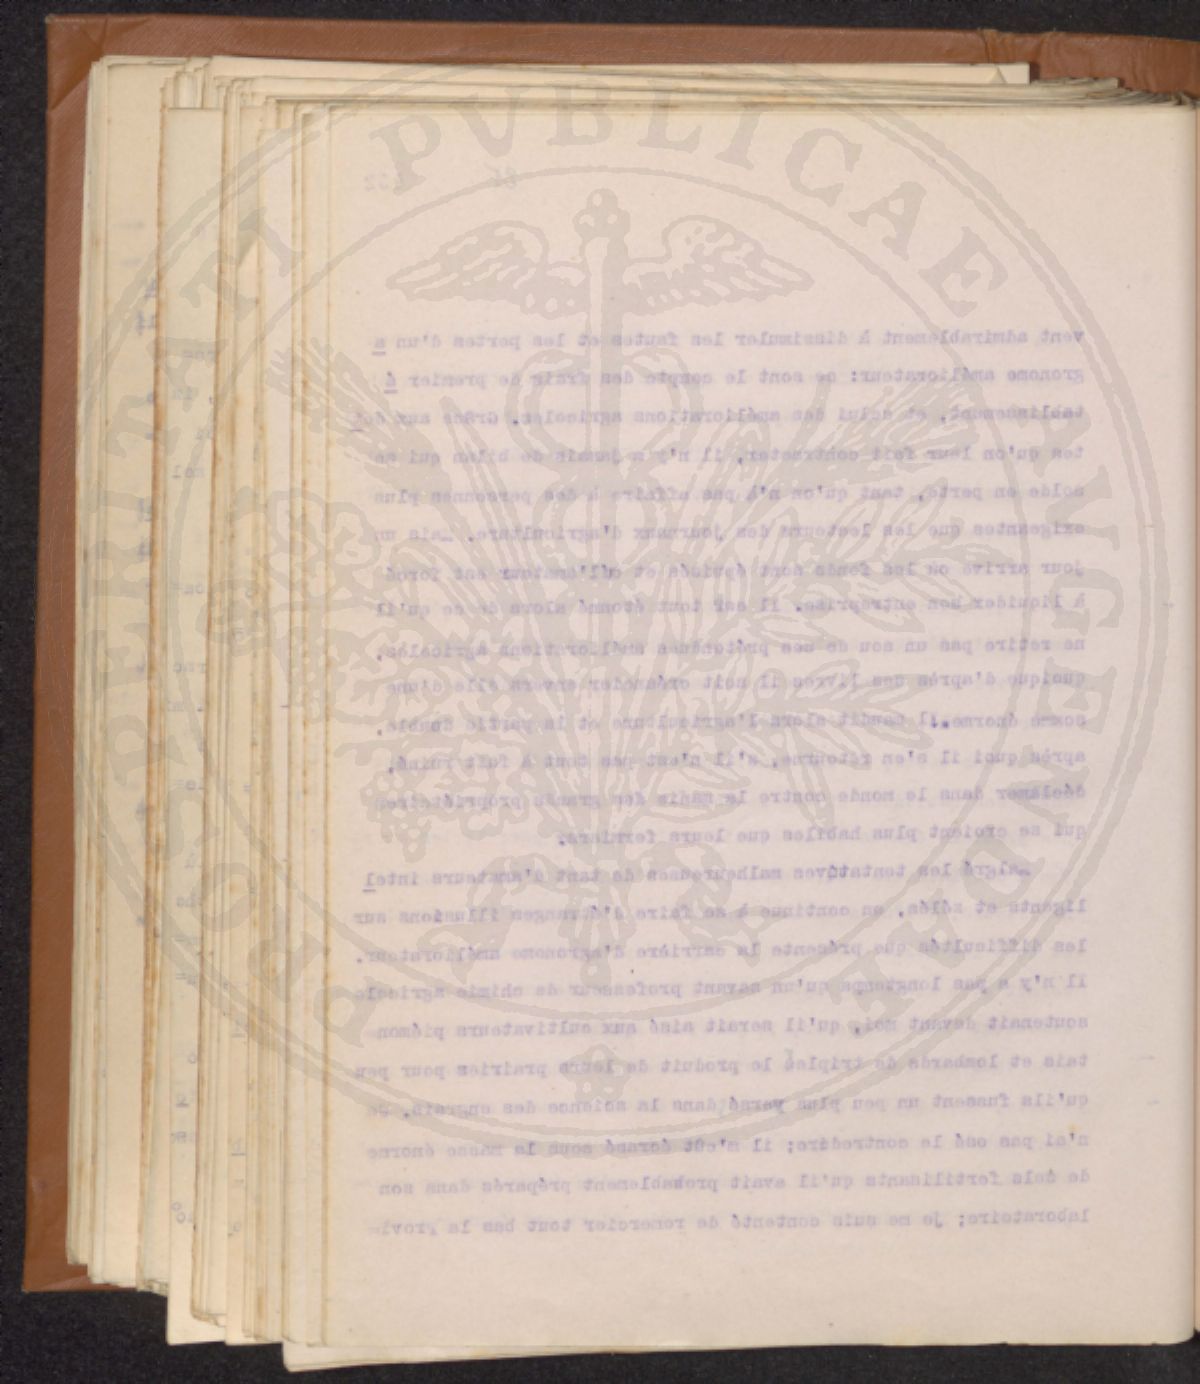 vent admirablement à dissimuler les fautes et les pertes d'un a
gronome améliorateur: ce sont le compte des frais de premier é
tablissement, et celui des améliorations agricoles. Grâce aux det
tes qu'on leur fait contracter, il n'y a jamais de bilan qui se
solde en perte, tant qu'on n'a pas affaire à des personnes plus
exigeantes que les lecteurs des journaux d'agriculture. Mais un
jour arrive ou les fonds sont épuisés et où l'amateur est forcé
à liquider son entreprise. Il est tout étonné alors de ce qu'il
ne retire pas un sou de ses prétendues améliorations agricoles,
quoique d'après ses livres il soit créancier envers elle d'une
somme énorme. Il maudit alors l'agriculture et la partie double,
après quoi il s'en retourne, s'il n'est pas tout à fait ruiné,
déclamer dans le monde contre la manie des grands propriétaires
qui se croient plus habiles que leurs fermiers.
Malgré les tentatives malheureuses de tant d'amateurs intel
ligents et zélés, on continue à se faire d'étranges illusions sur
les difficultés que présente la carrière d'agronome améliorateur.
Il n'y a pas longtemps qu'un savant professeur de chimie agricole
soutenait devant moi, qu'il serait aisé aux cultivateurs piémon
tais et lombards de tripler le produit de leurs prairies pour peu
qu'ils fussent un peu plus versé dans la science des engrais. Je
n'ai pas osé le contredire; il m'eût écrasé sous la masse énorme
de sels fertilisants qu'il avait probablement préparés dans son
laboratoire; je me suis contenté de remercier tout bas la provi-
PROSPERITATI PVBLICAE AVGENDAE